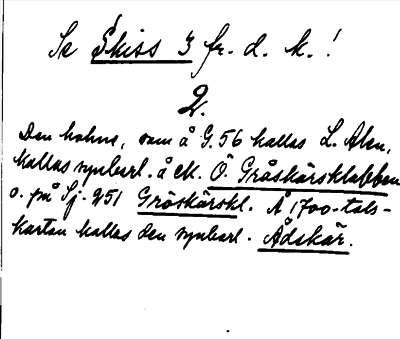 Se Skiss 3 fr. d. k.!
2.
Den holme, som å G.56 kallas L. Alen,
kallas synbarl. å ek. Ö. Gråskärsklabben
o. på Sj. 251 Gröskärskl. Å 1700-tals-
kartan kallas den synbarl. Ådskär.